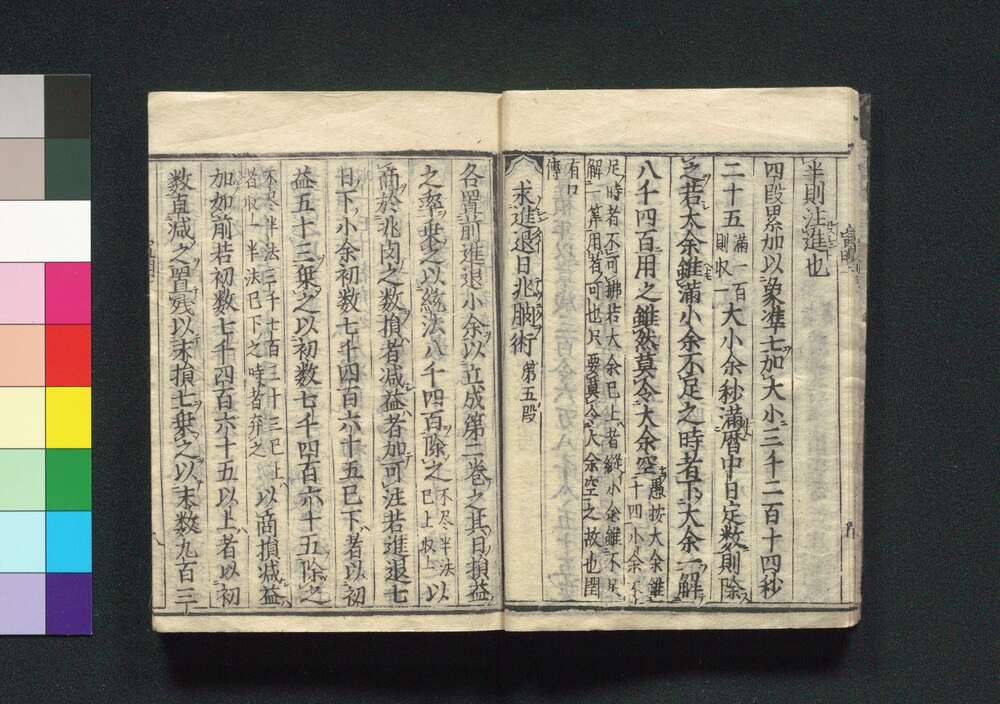 半則注進也
四段累加以象準七加大小三千二百十四秒
二十五満一百則収一大小余秒満暦中日定数則除
之若大余雖満小余不足之時者下大余一解
八千四百用之雖然莫令大余空愚按大余雖二十四小余不
足時者不可拂若大余已上者縦小余雖不足
解一算用者可也只要莫令大余空之故也
有
求進退日兆朒術第五段
各置前進退小余以立成第二巻之其日損益
之率乗之以統法八千四百除之不尽半法已上収一以
商於兆朒之数損者減益者加可注若進退七
日下小余初数七千四百六十五已下者以初
益五十三乗之以初数七千四百六十五除之
不尽半法三千七百三十三已上者収一半法已下之時者弃之以商損減益
加加前若初数七千四百六十五以上者以初
数直減之置残以末損七乗之以末数九百三